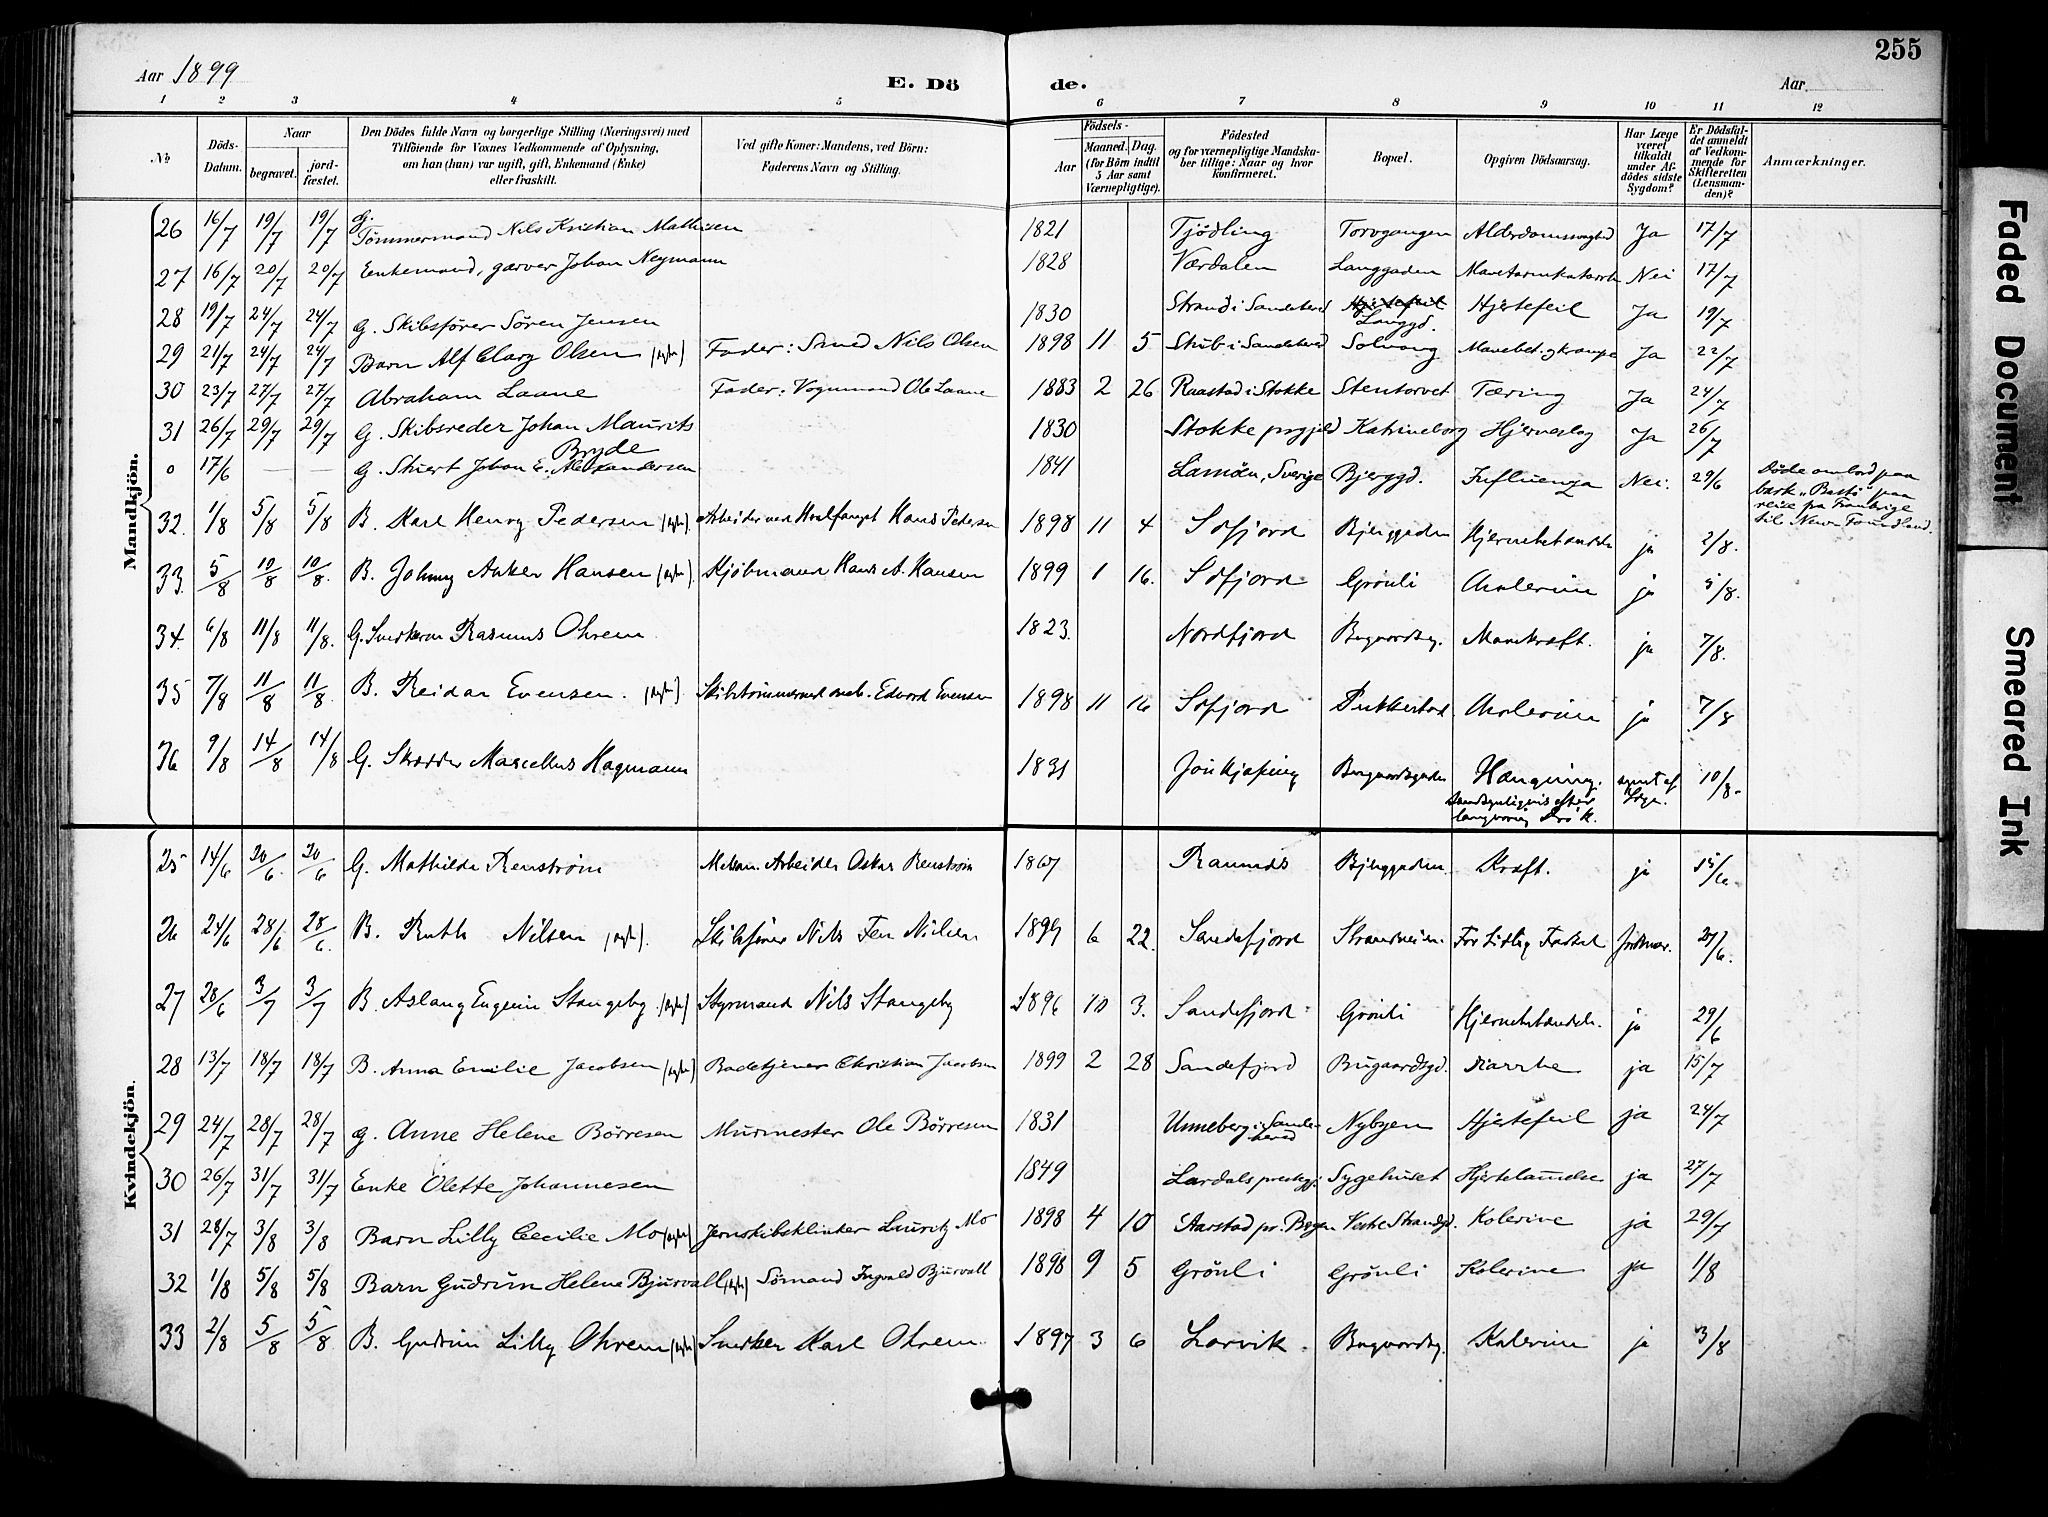 255
Aar 1899
E. Dö
de.
Aar
1 2 3 4 5 6 7 8 9 10 11 12
№
Döds-Datum.
Naar
begravet.
jord-fæstet.
Den Dödes fulde Navn og borgerlige Stilling (Næringsvei) med
Tilföiende for Voxnes Vedkommende af Oplysning,
om han (hun) var ugift, gift, Enkemand (Enke)
eller fraskilt.
Ved gifte Koner: Mandens, ved Börn:
Faderens Navn og Stilling.
Födsels-
Aar
Maaned. Dag.
(for Börn indtil
5 Aar samt
Værnepligtige).
Födested
og for værnepligtige Mandska-
ber tillige: Naar og hvor
konfirmeret.
Bopæl.
Opgiven Dödsaarsag.
Har Læge
været
tilkaldt
under Af-
dödes sidste
Sygdom?
Er Dödsfal-
det anmeldt
af Vedkom-
mende for
Skifteretten
(Lensman-
den)?
Anmærkninger.
Mandkjön.
26 16/7 19/7 19/7 g. Tömmermand Nils Kristian Mathisen 1821 Tjödling Torvgangen Alderdomssvaghed Ja 17/7
27 16/7 20/7 20/7 Enkemand, garver Johan Neymann 1828 Værdalen Langgaden Mavetarmkatarrh Nei 17/7
28 19/7 24/7 24/7 g. Skibsförer Sören Jensen 1830 Strand i Sandeherred Hjertefeil Langgd. Hjertefeil Ja 19/7
29 21/7 24/7 24/7 Barn Alf Clary Olsen (ægte) Fader: Smed Nils Olsen 1898 11 5 Skub i Sandeherred Solvang Mavebet. og krampe Ja 22/7
30 23/7 27/7 27/7 Abraham Laane Fader: Vognmand Ole Laane 1883 2 26 Raastad i Stokke Stentorvet Tæring Ja 24/7
31 26/7 29/7 29/7 G. Skibsreder Johan Maurits Bryde 1830 Stokke prgjeld Katrineborg Hjerneslag Ja 26/7
0 17/6 — — g. Stuert Johan E. Alexandersen 1841 Lamöen, Sverige Bjerggd. Influenza Nei. 29/6 Döde ombord paa
bark "Bastö" paa
reise fra Frankrige
til New Foundland.
32. 1/8 5/8 5/8 B. Karl Henry Pedersen (ægte) Arbeider ved Hvalfangst Hans Pedersen 1898 11 4 Sdfjord Bjerggaden Hjernebetændelse ja 2/8.
33. 5/8 10/8 10/8. B. Johnny Anker Hansen (ægte). Kjöbmand Hans A. Hansen 1899 1 16. Sdfjord Grönli Cholerine ja 5/8.
34. 6/8 11/8 11/8. G. Snedker Rasmus Ohrem 1823. Nordfjord Bugaardsg. Mavekræft. ja 7/8.
35 7/8 11/8 11/8. B. Reidar Evensen. (ægte). Edvard Evensen 1898 11 16 Sdfjord Pukkestad Cholerine ja 7/8
36 9/8 14/8 14/8 G. Skrædder Marcellus Hagmann 1831 Jönkjöping Bugaardsgaden Hængning. Sandsynligvis efter langvarig Drik. synet af Læge. 10/8.
Kvindekjön.
25 14/6 20/6. 20/6 G. Mathilde Renström Mekan. Arbeider Oskar Renström 1867 Ramnæs Bjerggaden. Kræft. ja 15/6.
26 24/6 28/6 28/6. B. Ruth Nilsen (ægte). Skibsförer Nils Fen Nilsen 1899 6 22. Sandefjord Strandveien. For tidlig Födsel Jordmor. 27/6.
27 28/6 3/7 3/7 B. Aslaug Eugenie Stangeby (ægte) Styrmand Nils Stangeby 1896 10 3. Sandefjord Grönli Hjernebetændelse. ja 29/6
28 13/7 18/7 18/7 B. Anna Emilie Jacobsen (ægte) Badetjener Christian Jacobsen 1899 2 28 Sandefjord Bugaardsgd. Diarrhe ja 15/7
29 24/7 28/7 28/7 g. Anne Helene Börresen Murmester Ole Börresen 1831 Unneberg i Sandeherred Nybyen Hjertefeil ja 24/7
30 26/7 31/7 31/7 Enke Olette Johannesen 1849 Lardals prestegj. Sygehuset Hjertelammelse ja 27/7
31 28/7 3/8 3/8 Barn Lilly Cecilie Mo (ægte) Jernskibsklinker Lauritz Mo 1898 4 10 Aarstad pr. Bergen Vestre Strandgd. Kolerine ja 29/7
32 1/8 5/8 5/8 Barn Gudrun Helene Bjurvall (ægte) Sömand Ingvald Bjurvall 1898 9 5 Grönli Grönli Kolerine ja 1/8
33 2/8 5/8 5/8 B. Gudrun Lilly Ohrem (ægte) Snedker Karl Ohrem. 1897 3 6 Larvik. Bugaardsg. Kolerine ja 3/8
Faded Document
Smeared Ink